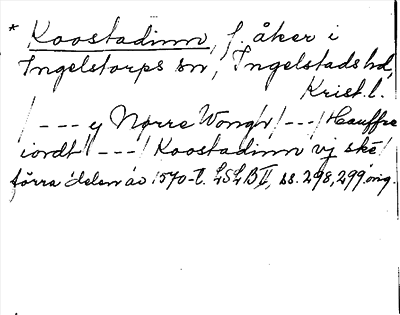 * Koostadinn, f. åker i
Ingelstorps sn, Ingelstads hd,
Krist. l.
/ --- y Norre Wongh / --- / Hauffre
iordt / --- / Koostadinn vj ske /
förra delen av 1570-t. LSLB II, ss. 298, 299 orig.